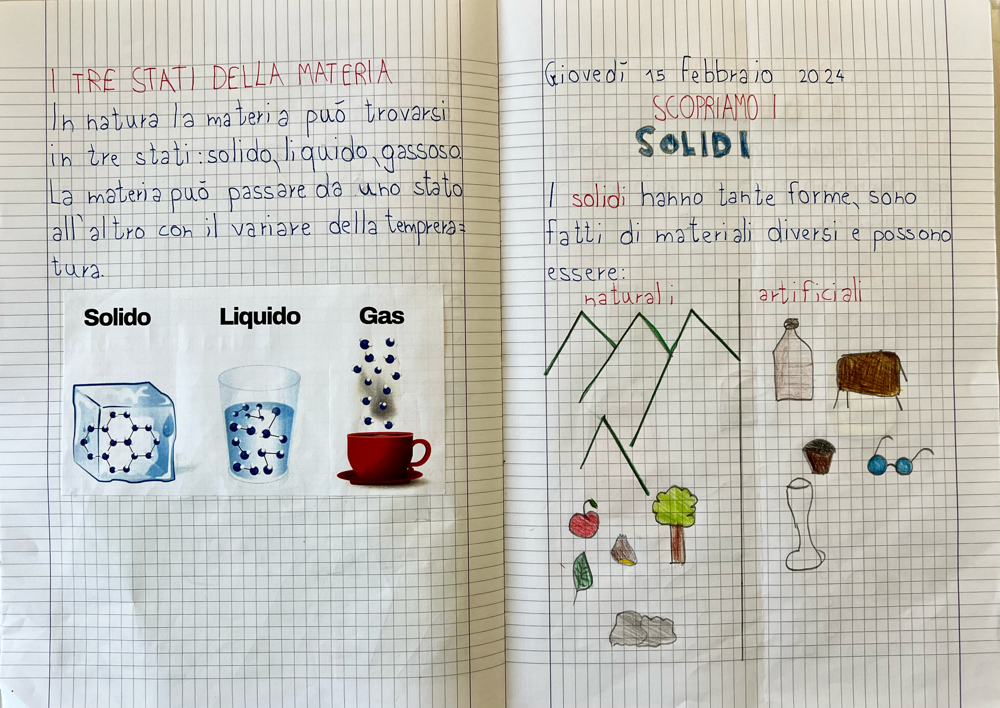 I TRE STATI DELLA MATERIA
In natura la materia può trovarsi
in tre stati: solido, liquido, gassoso.
La materia può passare da uno stato
all'altro con il variare della temprera=
tura.
Solido Liquido Gas
Giovedì 15 Febbraio 2024
SCOPRIAMO I
SOLIDI
I solidi hanno tante forme, sono
fatti di materiali diversi e possono
essere:
naturali artificiali